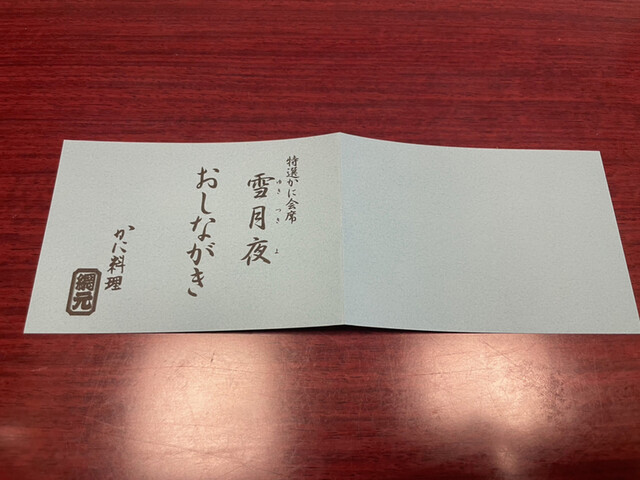 特選かに会席
雪月夜
ゆきつきよ
おしながき
かに料理
網元